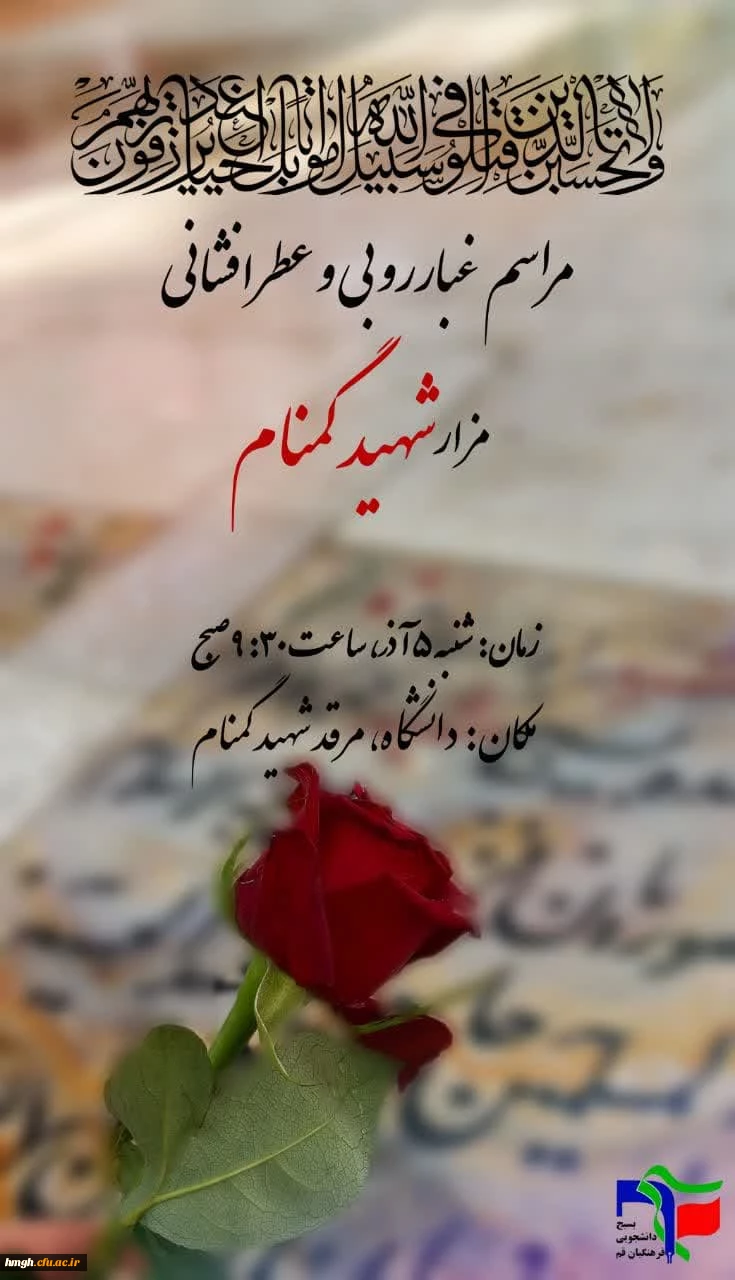 ولا تحسبن الذین قتلوا فی سبیل الله امواتا بل احیاء عند ربهم یرزقون
مراسم غبارروبی و عطرافشانی
مزار شهید گمنام
زمان: شنبه ۵ آذر، ساعت ۹:۳۰ صبح
مکان: دانشگاه، مرقد شهید گمنام
بسیج
دانشجویی
فرهنگیان قم
hmgh.cfu.ac.ir